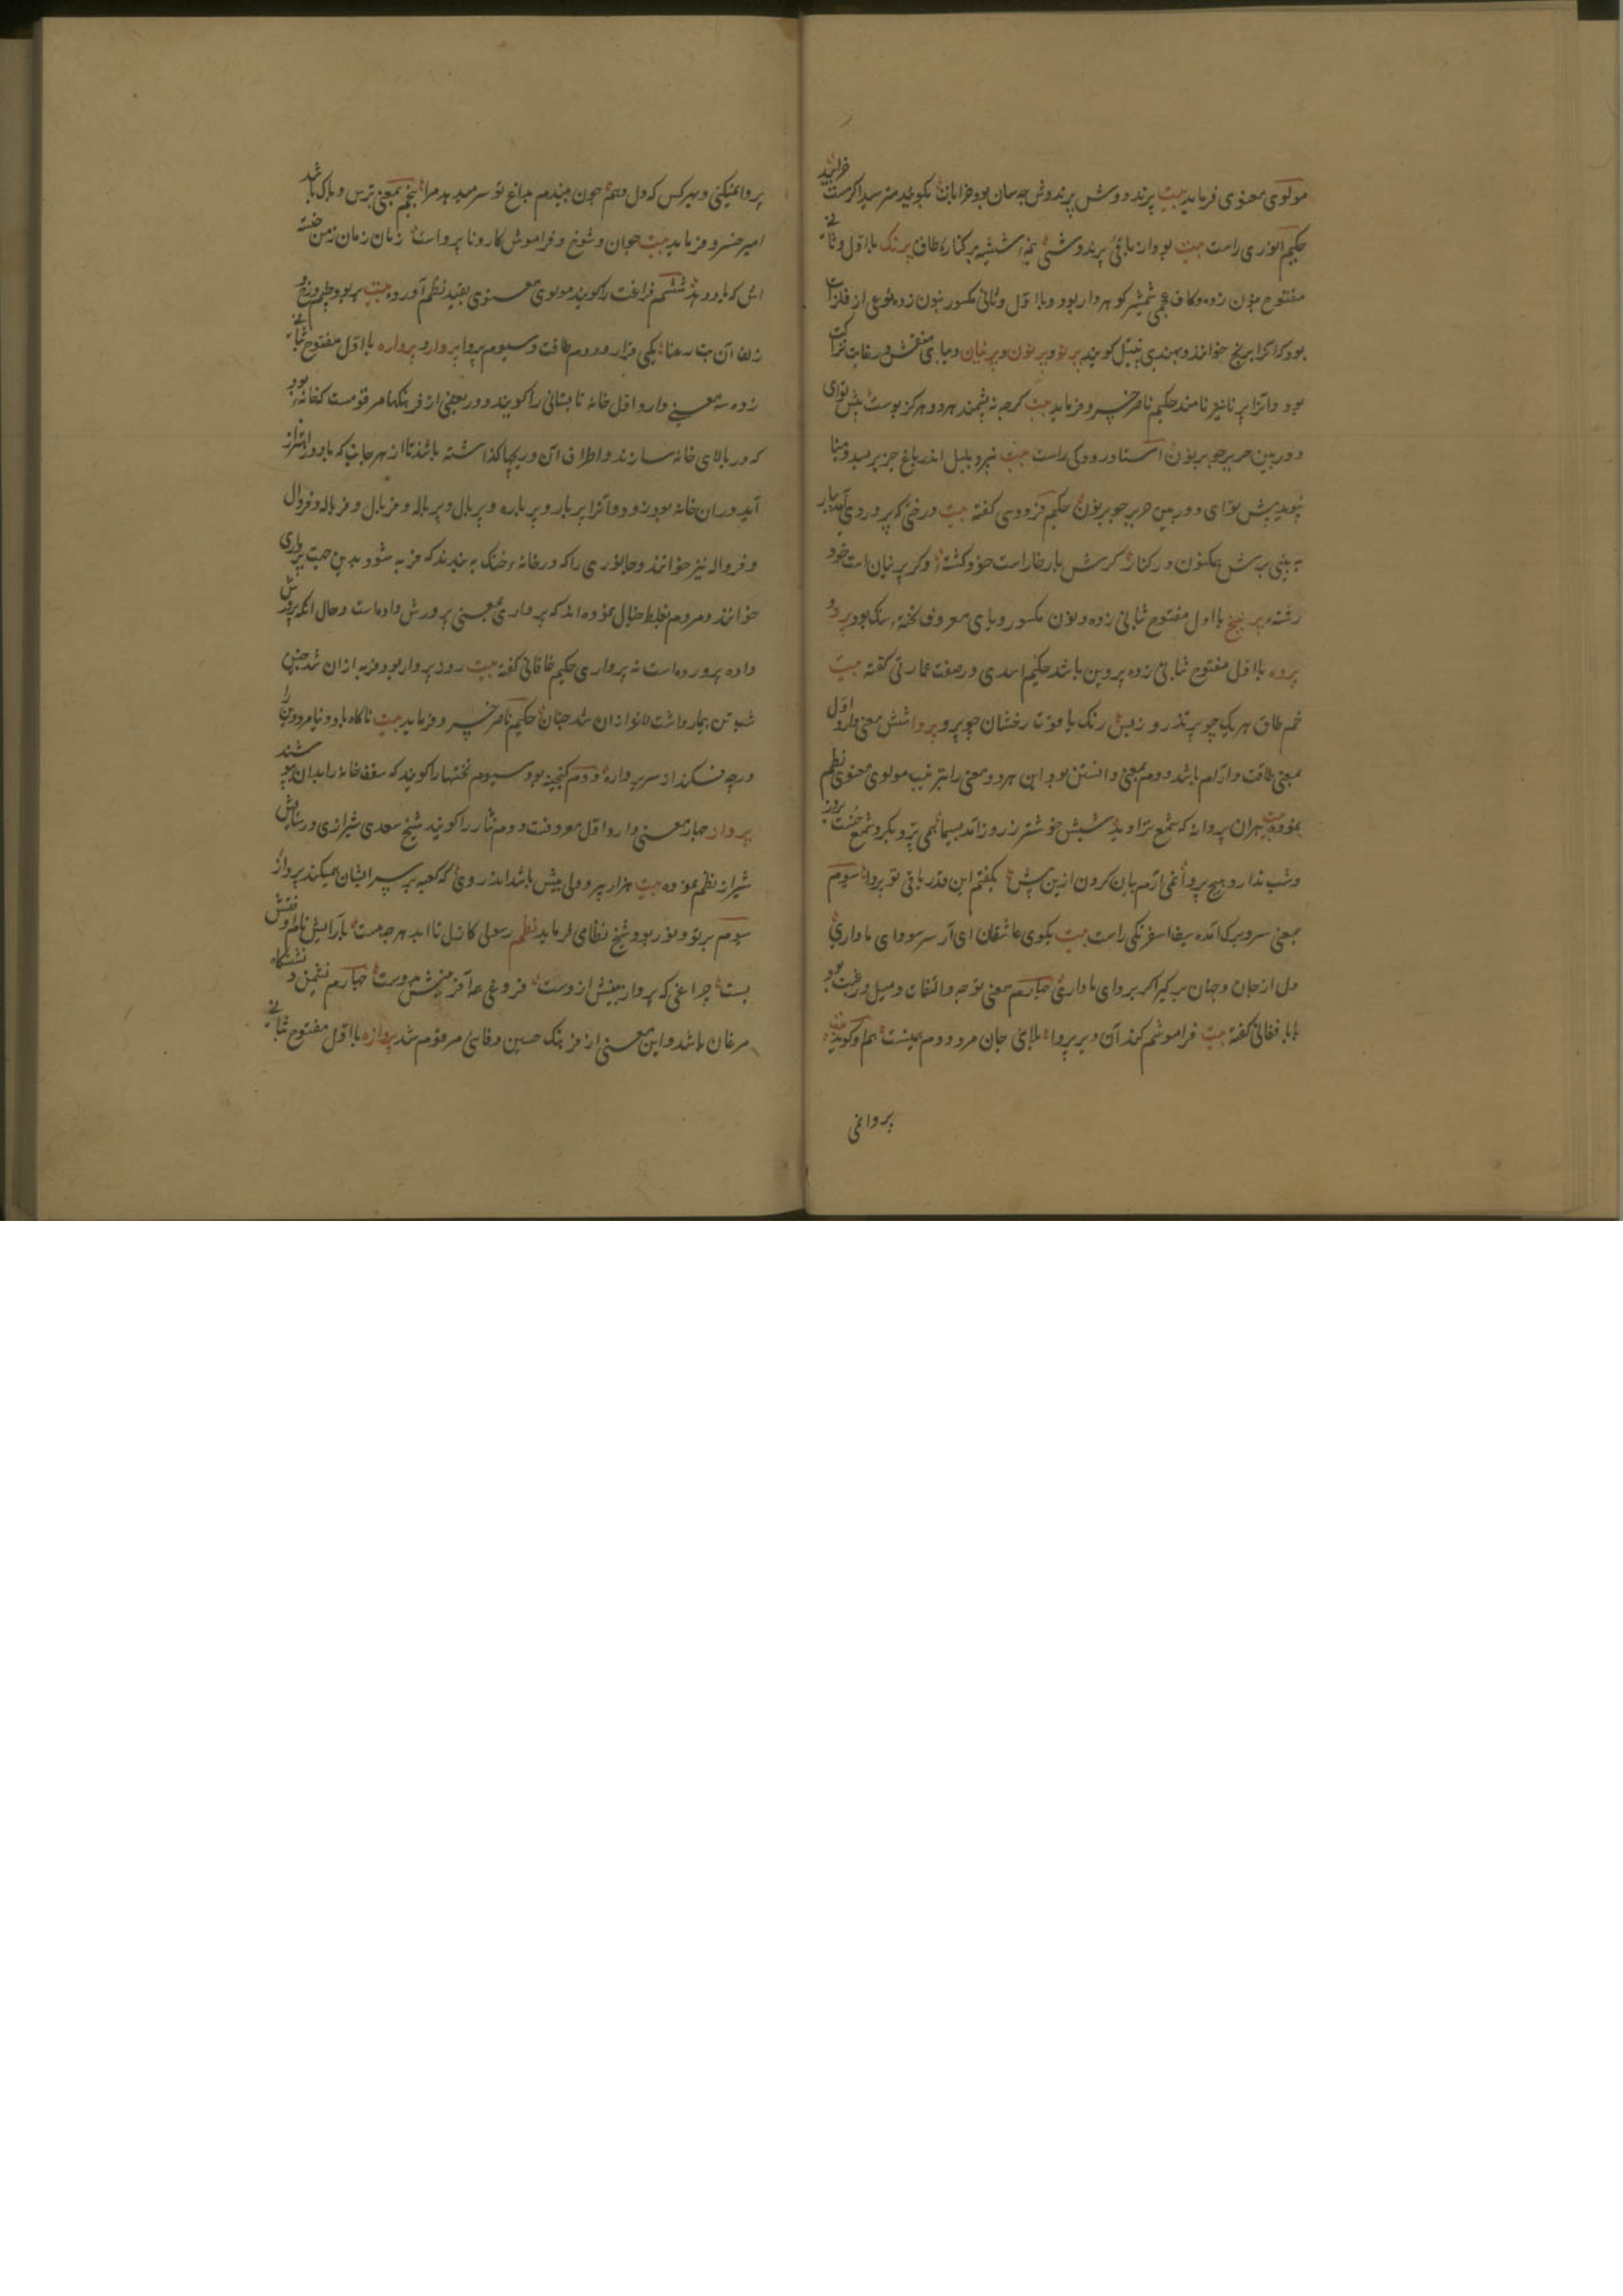 مولوی معنوی فرماید بیت پرند دوش پرندوش چه سان بود خرابات بکوئید مترسید اکر مست خرابید
حکیم انوری راست بیت بود از باقی پرندوشی نیم شیشه بر کناره طاق پرنک با اول و ثانی
مفتوح بنون زده و کاف عجمی شمشیر کوهردار بود و با اول و ثانی مکسور بنون زده نوعی از فلزات
بود که آنرا برنج خوانند و بهندی پیتل کویند پرنو و پرنون و پرنیان دیبای منقش در غایت نزاکت
بود و آنرا پرنا نیز نامند حکیم ناصر خسرو فرماید بیت کرچه پشمند هر دو هرکز بوست پیش تو ای
دوربین حریر چو پرنون استاد رودکی راست بیت بلبل اندر باغ جز بر سید و مینا
نپوید پیش تو ای دوربین حریر چو پرنون حکیم فردوسی کفته بیت درختی که پروردی آمد ببار
به بینی برش هم کنون در کنار کرش بار خار است خود کشته و کر پرنیان است خود
رشته پرنیخ با اول مفتوح بثانی زده و نون مکسور و یای معروف تخته سنک بود پرو و
پروه با اول مفتوح بثانی زده پروین باشد حکیم اسدی در صفت عمارتی کفته بیت
خم طاق هر یک چو پر تذرو ز بس رنک یاقوت رخشان چو پرو پروا شش معنی دارد اول
بمعنی طاقت و آرام باشد دوم بمعنی دانستن بود این هر دو معنی را بترتیب مولوی معنوی نظم
نموده بیت هران پروانه که شمع ترا دید شبش خوشتر ز روز آمد بسیما همی پرد بکرد شمع حسنت بروز
و شب ندارد هیچ پروا نمی آرم بیان کردن ازین بیش بکفتم این قدر باقی تو پروا سیوم
بمعنی سر و برک آمده سیف اسفرنکی راست بیت بکوی عاشقان ای آر سر سودای ما داری
دل از جان و جهان بر کیر اکر پروای ما داری چهارم بمعنی توجه و التفات و میل و رغبت بود
بابا فغانی کفته بیت فراموشم کند آن دیر پروا بلای جان مردم همنشینت
پروا نمی
پروا نمیکنی و بهر کس که دل دهم چون بیندم بداغ تو سر میدهد مرا پنجم بمعنی ترس و باک باشد
امیر خسرو فرماید بیت جوان و شوخ و فراموش کار و ناپرواست زمان زمان ز من خسته
اش که یاد دهد ششم فراغت را کویند مولوی معنوی بقید نظم آورده بیت
زلف آن بت رعنا یکی قرار و دوم طاقت و سیوم پروا پروار و پرواره با اول مفتوح بثانی
زده سه معنی دارد اول خانه تابستانی را کویند و در بعضی از فرهنکها مرقومست که خانه بود
که در بالای خانه سازند و اطراف آن دریچها کذاشته باشند تا از هر جانب که باد در اهتزاز
آید در آن خانه بوزد و آنرا پربار و پرباره و پربال و پرباله و فربال و فرباله و فروال
و فرواله نیز خوانند و جانوری را که در خانه خنک به بندند که فربه شود بدین جهت پرواری
خوانند و مردم بغلط خیال نموده اند که پرواری بمعنی پرورش داده است و حال آنکه پرورش
داده پرورده است نه پرواری حکیم خاقانی کفته بیت روز پروار بود فربه از آن شد چنین
شب تن بیمار داشت لاغر از آن شد چنان حکیم ناصر خسرو فرماید بیت ناکاه باد دنیا مردین را
در چه فکند از سر پرواره دوم کنجینه بود سیوم تختها را کویند که سقف خانه را بدان پوشند
پرواز چهار معنی دارد اول معروفست و دوم نثار را کویند شیخ سعدی شیرازی در ستایش
شیراز نظم نموده بیت هزار پیر و ولی بیش باشد اندر وی که کعبه بر سر ایشان همیکند پرواز
سیوم پرتو و نور بود شیخ نظامی فرماید نظم رسولی کازل تا ابد هر چه هست بآرایش نام او نقش
بست چراغی که پرواز بینش ازوست فروغ همه آفرینش ازوست چهارم نشیمن و نشستکاه
مرغان باشد و این معنی از فرهنک حسین وفائی مرقوم شد پروازه با اول مفتوح بثانی